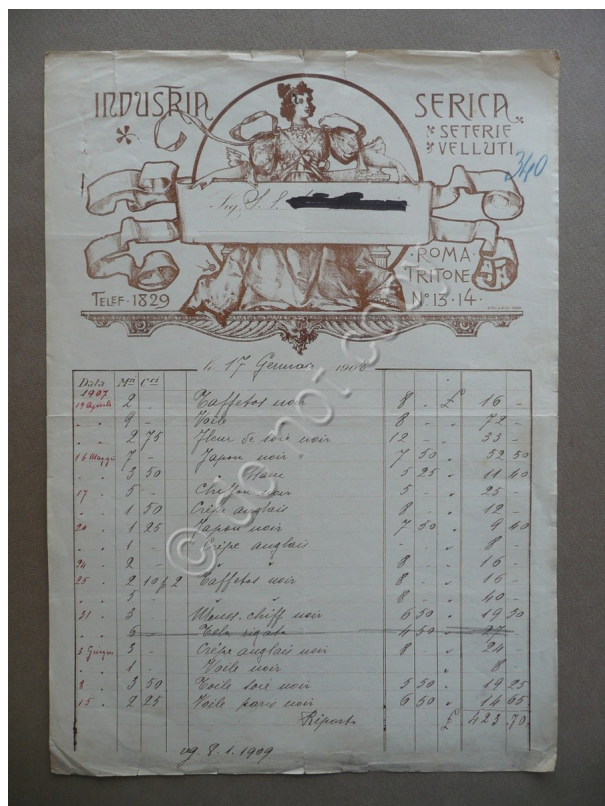 INDUSTRIA SERICA
SETERIE
VELLUTI
340
Sig. S.
ROMA
TRITONE
TELEF. 1829
Nº 13-14
li 17 Gennaio 1908
Data Mri Cri £
1907
19 Aprile 2 - Taffetas noir 8 - £ 16 -
" " 9 - Voile " 8 - " 72 -
" " 2 75 Fleur de soie noir 12 - " 33 -
16 Maggio 7 - Japon noir 7 50 " 52 50
" " 3 50 " blanc 3 25 " 11 40
17 " 5 - Chiffon noir 5 - " 25 -
" " 1 50 Crêpe anglais 8 - " 12 -
20 " 1 25 Japon noir 7 50 " 9 40
" " 1 - Crêpe anglais " 8 -
24 " 2 - " " 8 - " 16 -
25 " 2 10 p 2 Taffetas noir 8 - " 16 -
" " 5 - " " 8 - " 40 -
31 " 3 - Mouss. chiff noir 6 50 " 19 50
6 - Tela rigata 4 50 " 27 -
3 Giugno 3 - Crêpe anglais noir 8 - " 24 -
" " 1 - Voile noir " 8 -
8 " 3 50 Toile soie noir 5 50 " 19 25
15 " 2 25 Voile paris noir 6 50 " 14 65
Riporto £ 423 70
vg. 8.1.1909